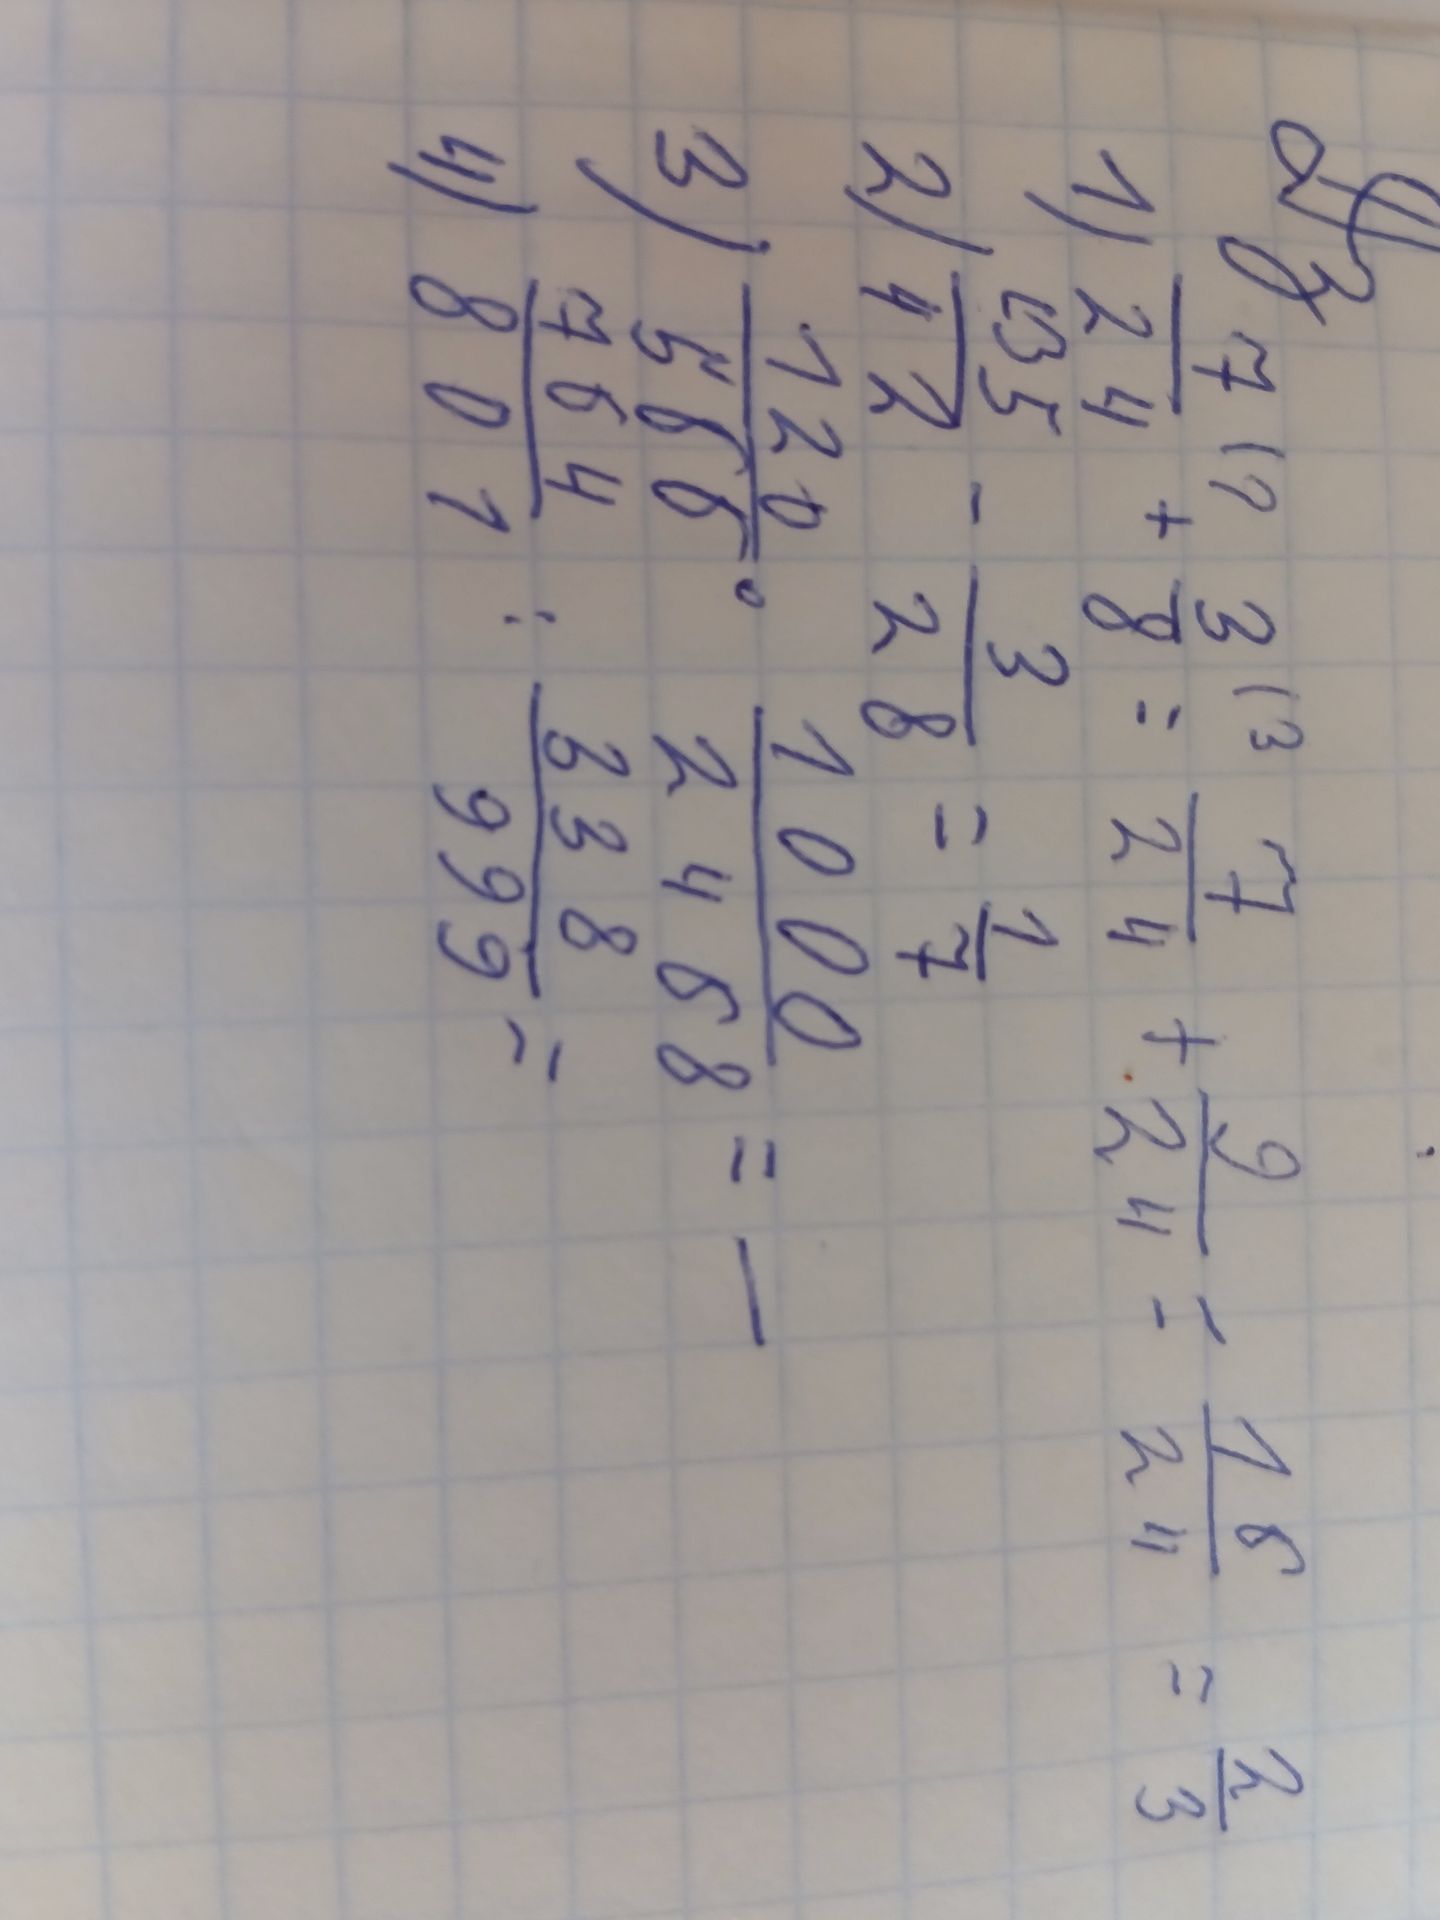 Дз
1) 7/24 + 3(3/8 = 7/24 + 9/24 = 16/24 = 2/3
2) 5/42 - 3/28 = 1/7
3) 120/566 · 1000/2468 = —
4) 764/801 : 338/999 =